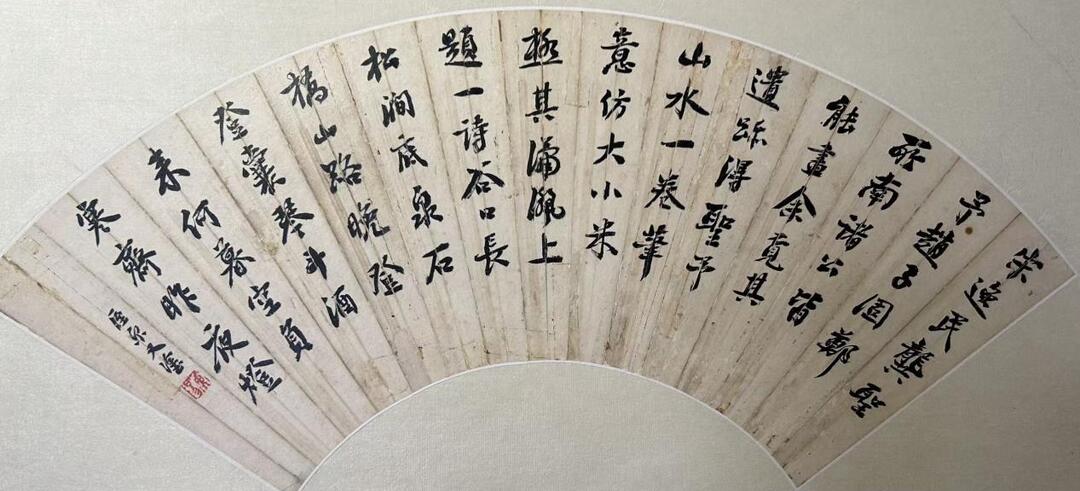 宋逸民龔聖
予趙子固鄭
所南諸公皆
能畫余覓其
遺跡得聖予
山水一卷筆
意仿大小米
極其瀟灑上
題一詩谷口長
松澗底泉石
橋山路晚登
登囊琴斗酒
來何暮空負
寒齋昨夜燈
又塗